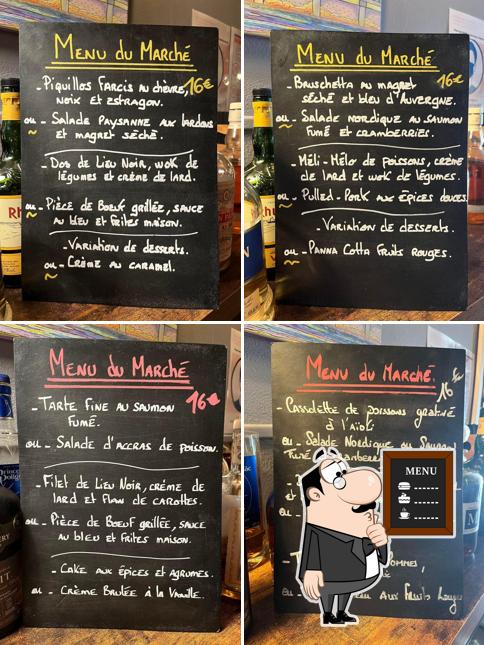 Menu du Marché
16€
- Piquillos Farcis au chèvre,
noix et estragon.
ou - Salade Paysanne aux lardons
et magret séché.
- Dos de Lieu Noir, wok de
légumes et crème de lard.
ou - Pièce de Boeuf grillée, sauce
au bleu et frites maison.
- Variation de desserts.
ou - Crème au caramel.
Menu du Marché
16€
- Bruschetta au magret
séché et bleu d'Auvergne.
ou - Salade Nordique au saumon
fumé et cramberries.
- Méli-Mélo de poissons, crème
de lard et wok de légumes.
ou - Pulled-Pork aux épices douces.
- Variation de desserts.
ou - Panna Cotta Fruits Rouges.
Menu du Marché
16€
- Tarte fine au saumon
fumé.
ou - Salade d'accras de poisson.
- Filet de Lieu Noir, crème de
lard et flan de carottes.
ou - Pièce de Boeuf grillée, sauce
au bleu et frites maison.
- Cake aux épices et agrumes.
ou - Crème Brulée à la Vanille.
Menu du Marché.
16
- Cassolette de poissons gratiné
à l'aïoli
ou - Salade Nordique au Saumon
MENU
ou
aux Fruits Rouges